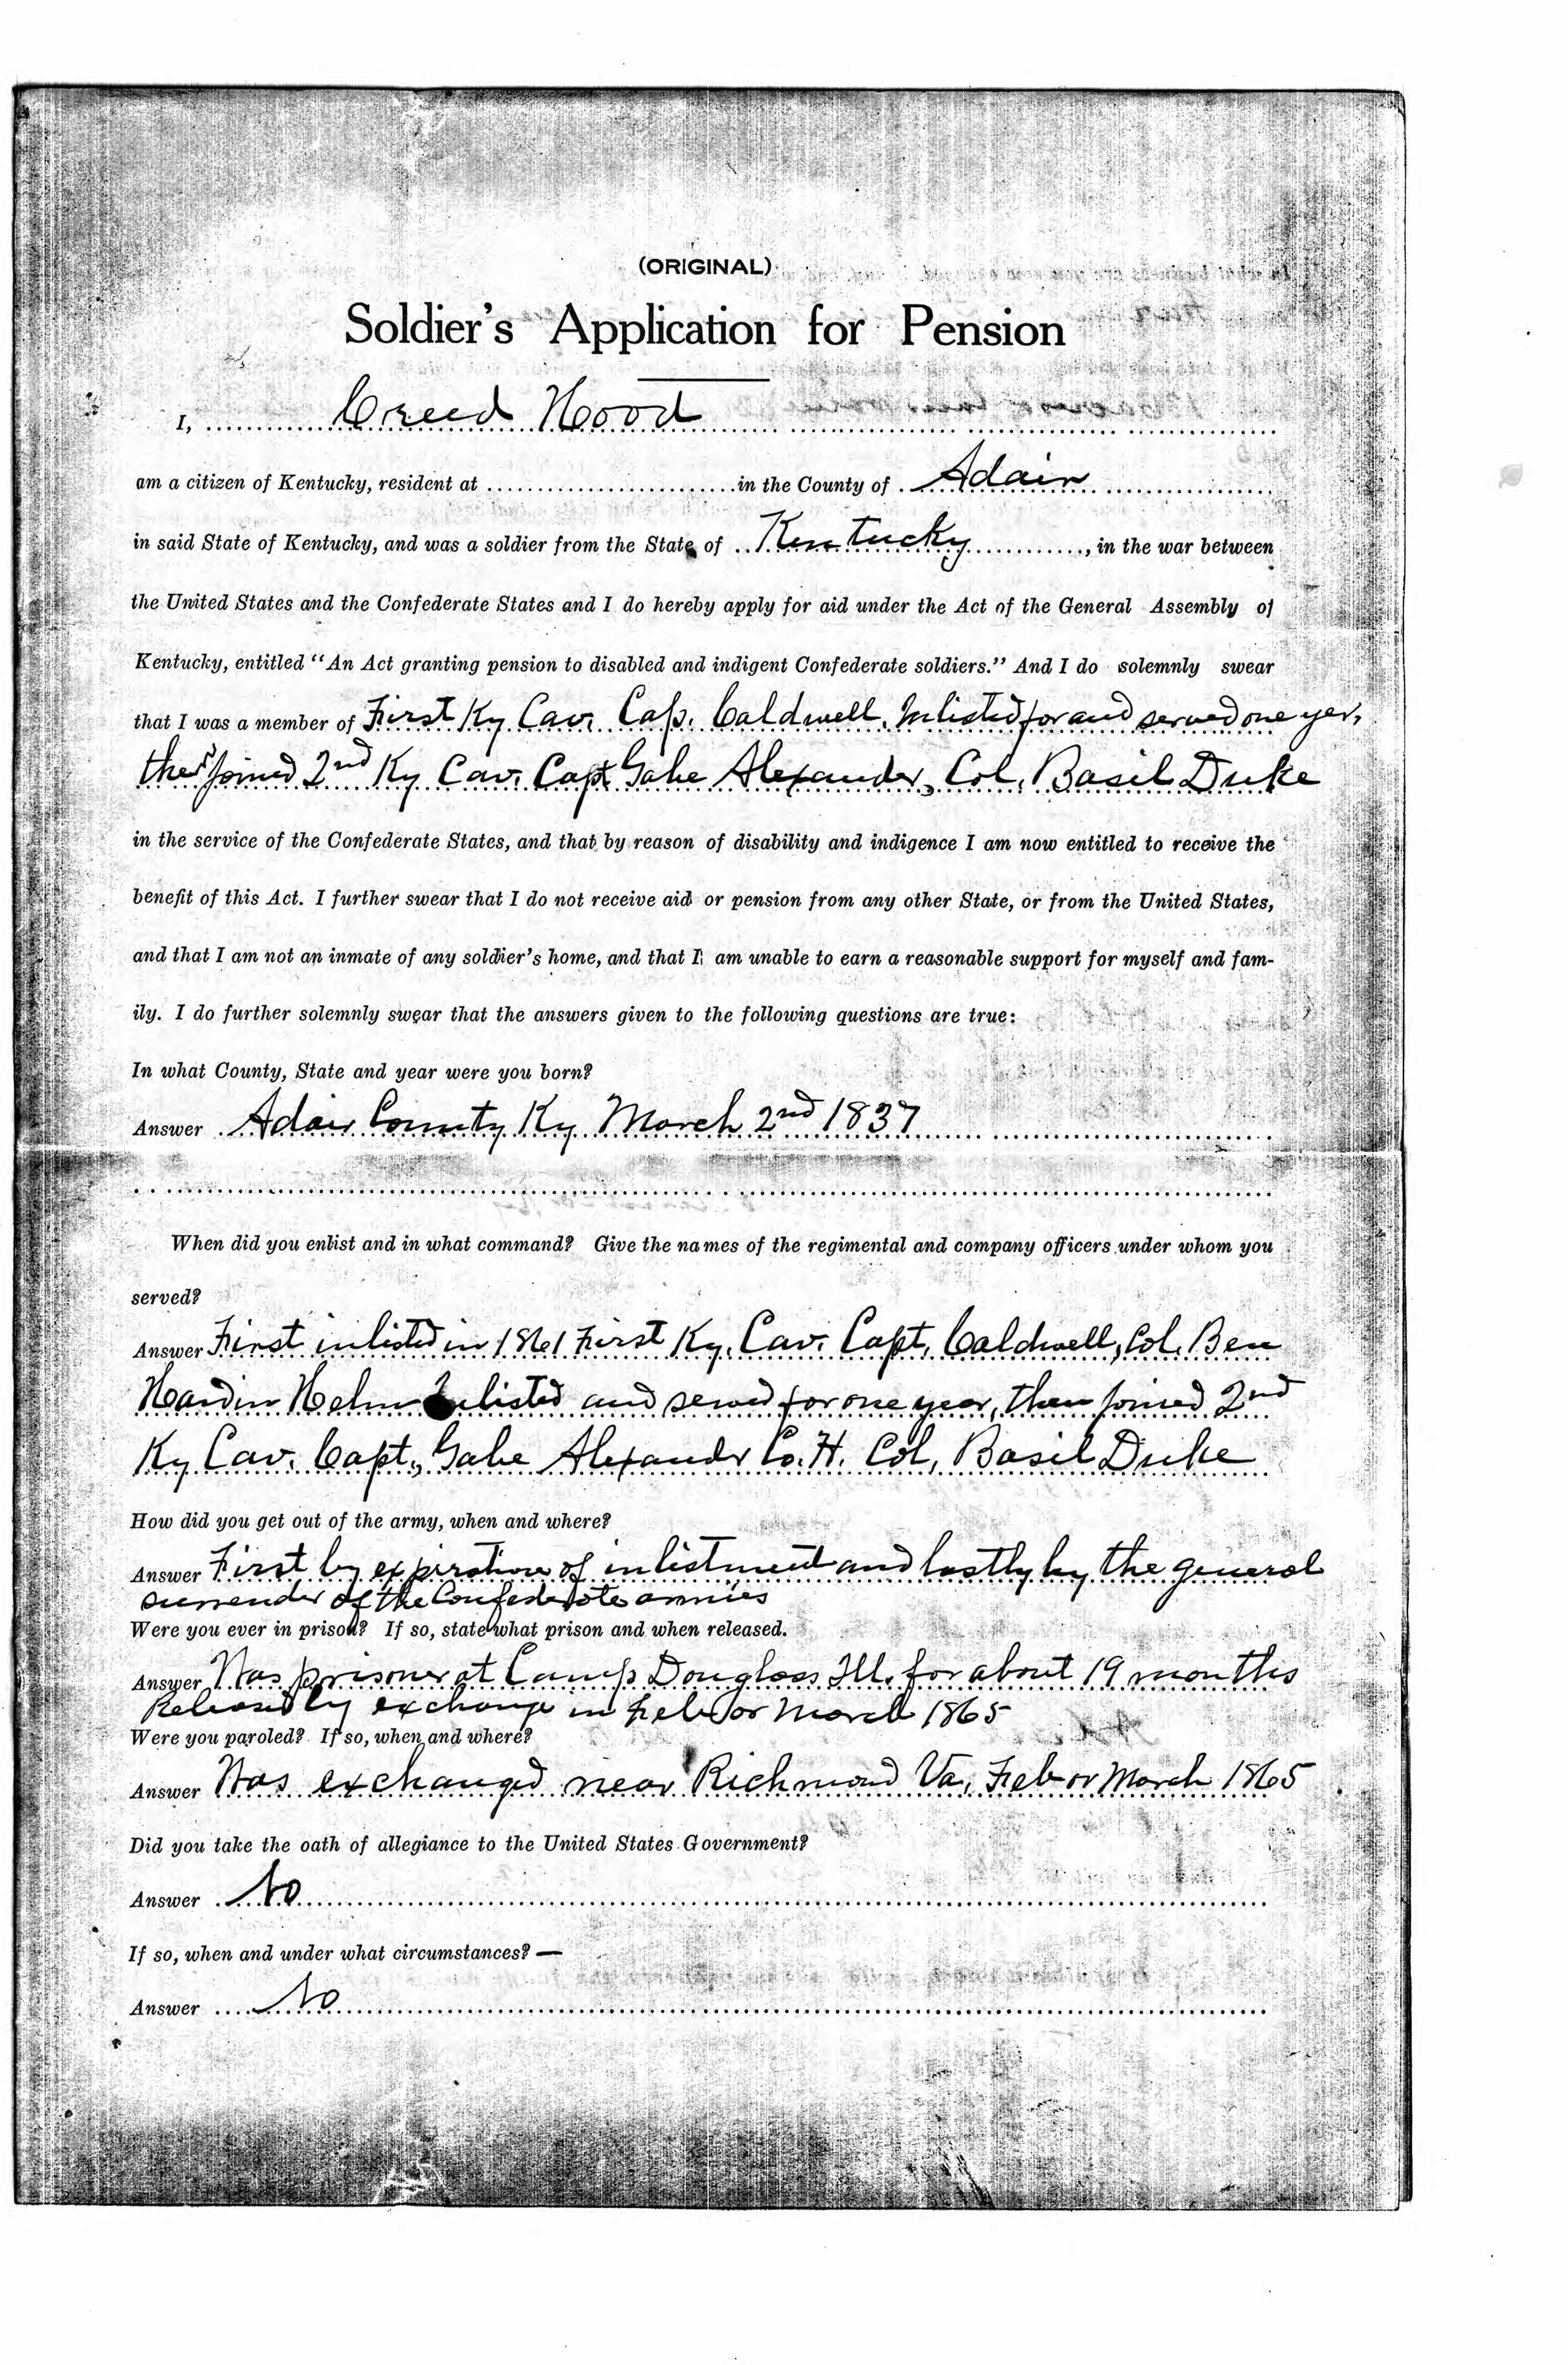 (ORIGINAL)
Soldier's Application for Pension
I, Creed Hood
am a citizen of Kentucky, resident at in the County of Adair
in said State of Kentucky, and was a soldier from the State of Kentucky, in the war between
the United States and the Confederate States and I do hereby apply for aid under the Act of the General Assembly of
Kentucky, entitled "An Act granting pension to disabled and indigent Confederate soldiers." And I do solemnly swear
that I was a member of First Ky Cav. Cap. Caldwell. Inlisted for and served one yer,
then joined 2nd Ky Cav. Capt Gabe Alexander, Col. Basil Duke
in the service of the Confederate States, and that by reason of disability and indigence I am now entitled to receive the
benefit of this Act. I further swear that I do not receive aid or pension from any other State, or from the United States,
and that I am not an inmate of any soldier's home, and that I am unable to earn a reasonable support for myself and fam-
ily. I do further solemnly swear that the answers given to the following questions are true:
In what County, State and year were you born?
Answer Adair County Ky March 2nd 1837
When did you enlist and in what command? Give the names of the regimental and company officers under whom you
served?
Answer First inlisted in 1861 First Ky. Cav. Capt, Caldwell, Col. Ben
Hardin Helm Inlisted and served for one year, then joined 2nd
Ky Cav. Capt., Gabe Alexandr Co. H. Col, Basil Duke
How did you get out of the army, when and where?
Answer First by expiration of inlistment and lastly by the general
surrender of the Confederate armies
Were you ever in prison? If so, state what prison and when released.
Answer Was prisoner at Camp Douglass Ill. for about 19 months
Released by exchange in Feb or March 1865
Were you paroled? If so, when and where?
Answer Was exchanged near Richmond Va, Feb or March 1865
Did you take the oath of allegiance to the United States Government?
Answer No
If so, when and under what circumstances? —
Answer No